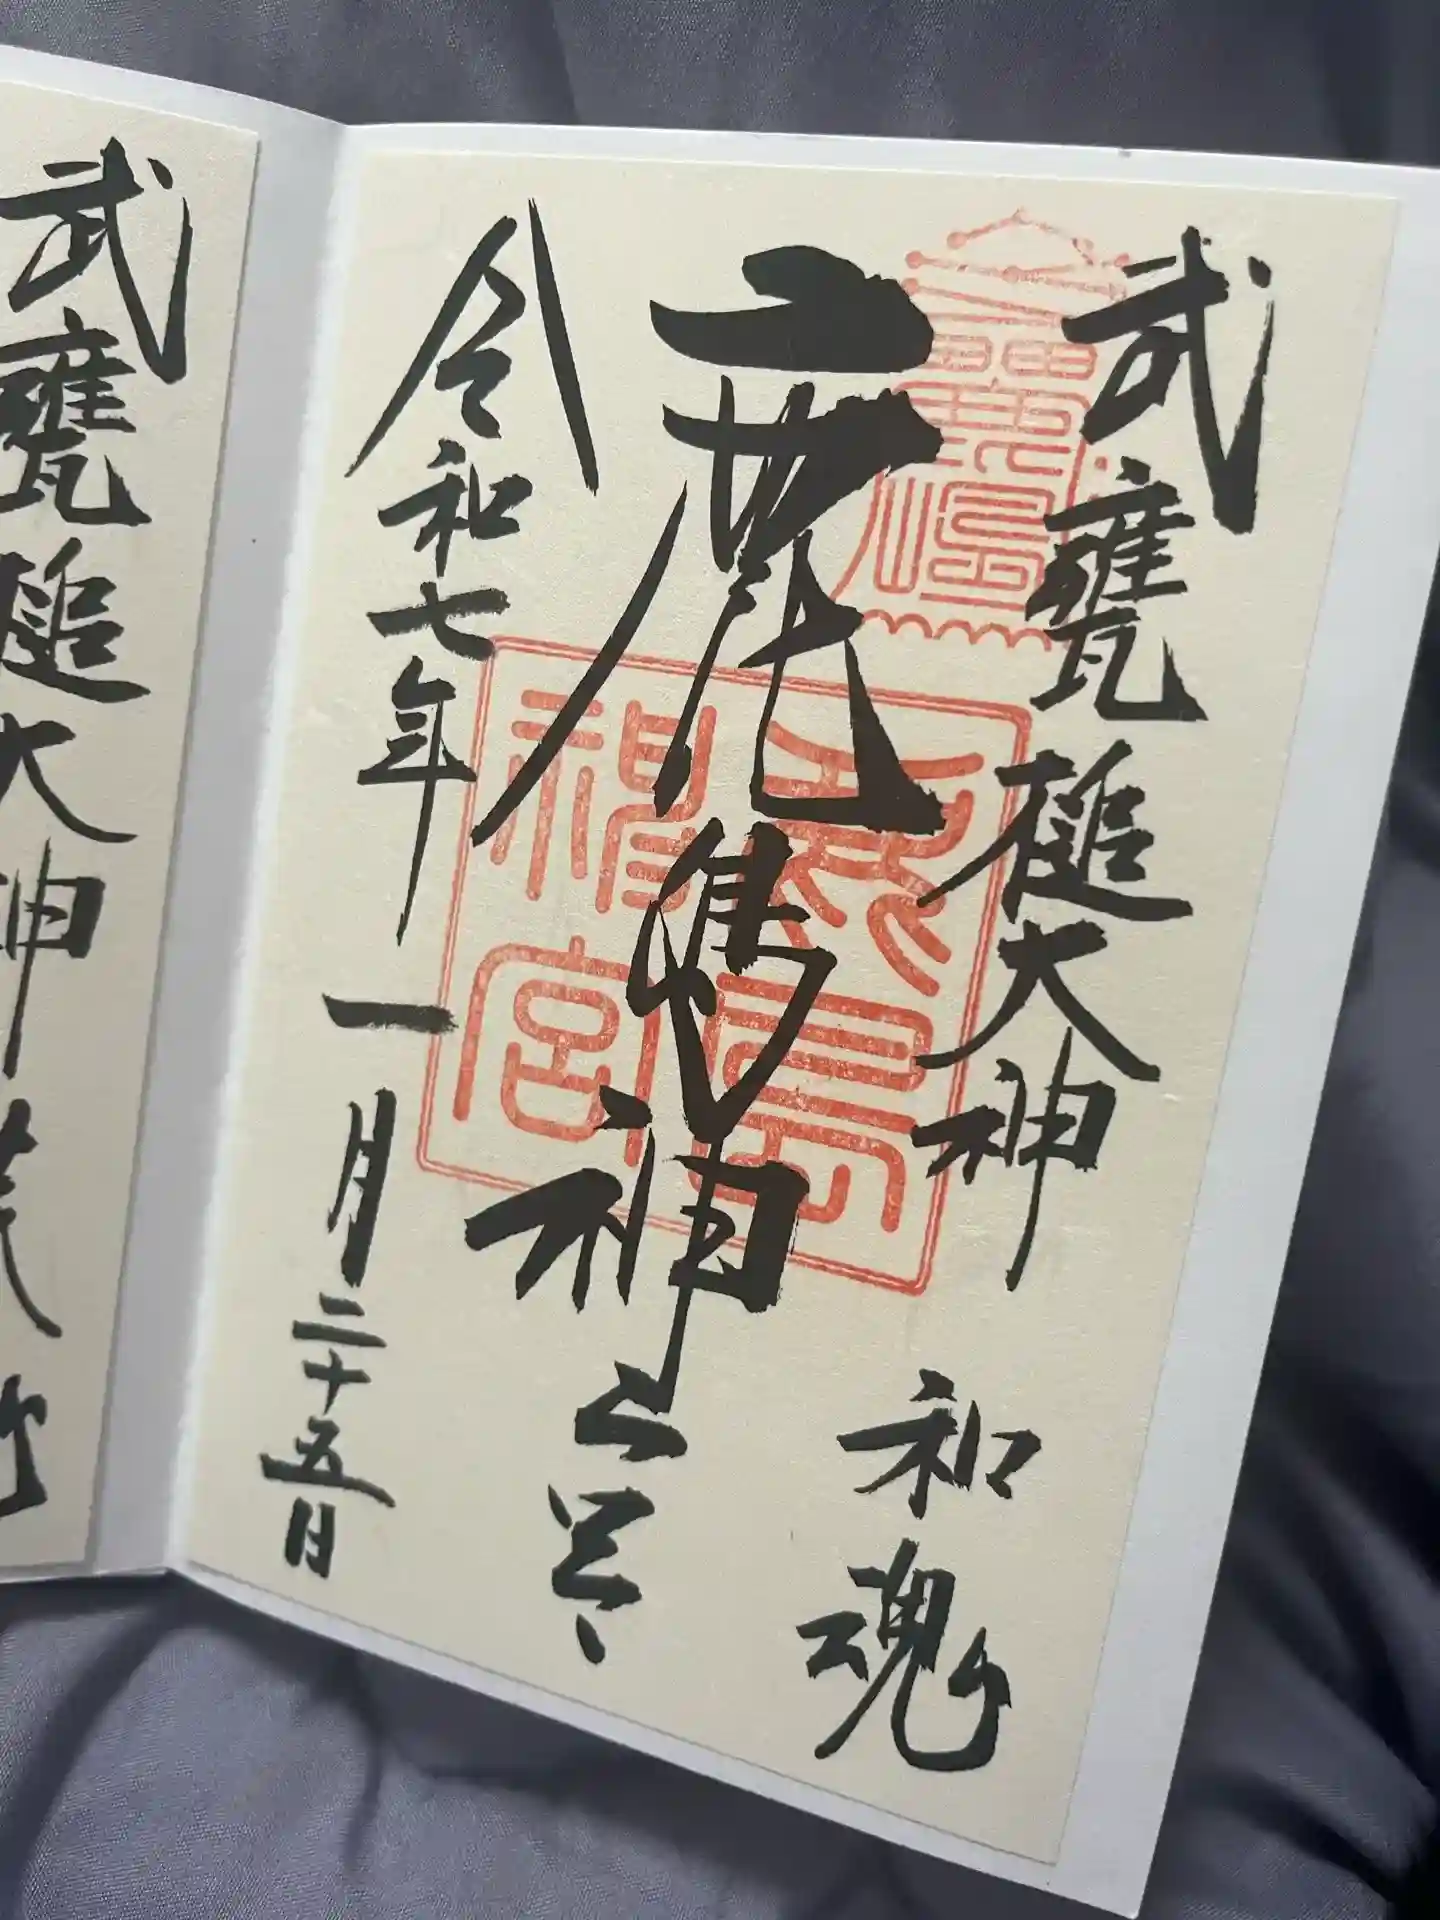 武甕槌大神 和魂
鹿島神宮
令和七年一月二十五日
鹿島
神宮
武甕槌大神荒魂